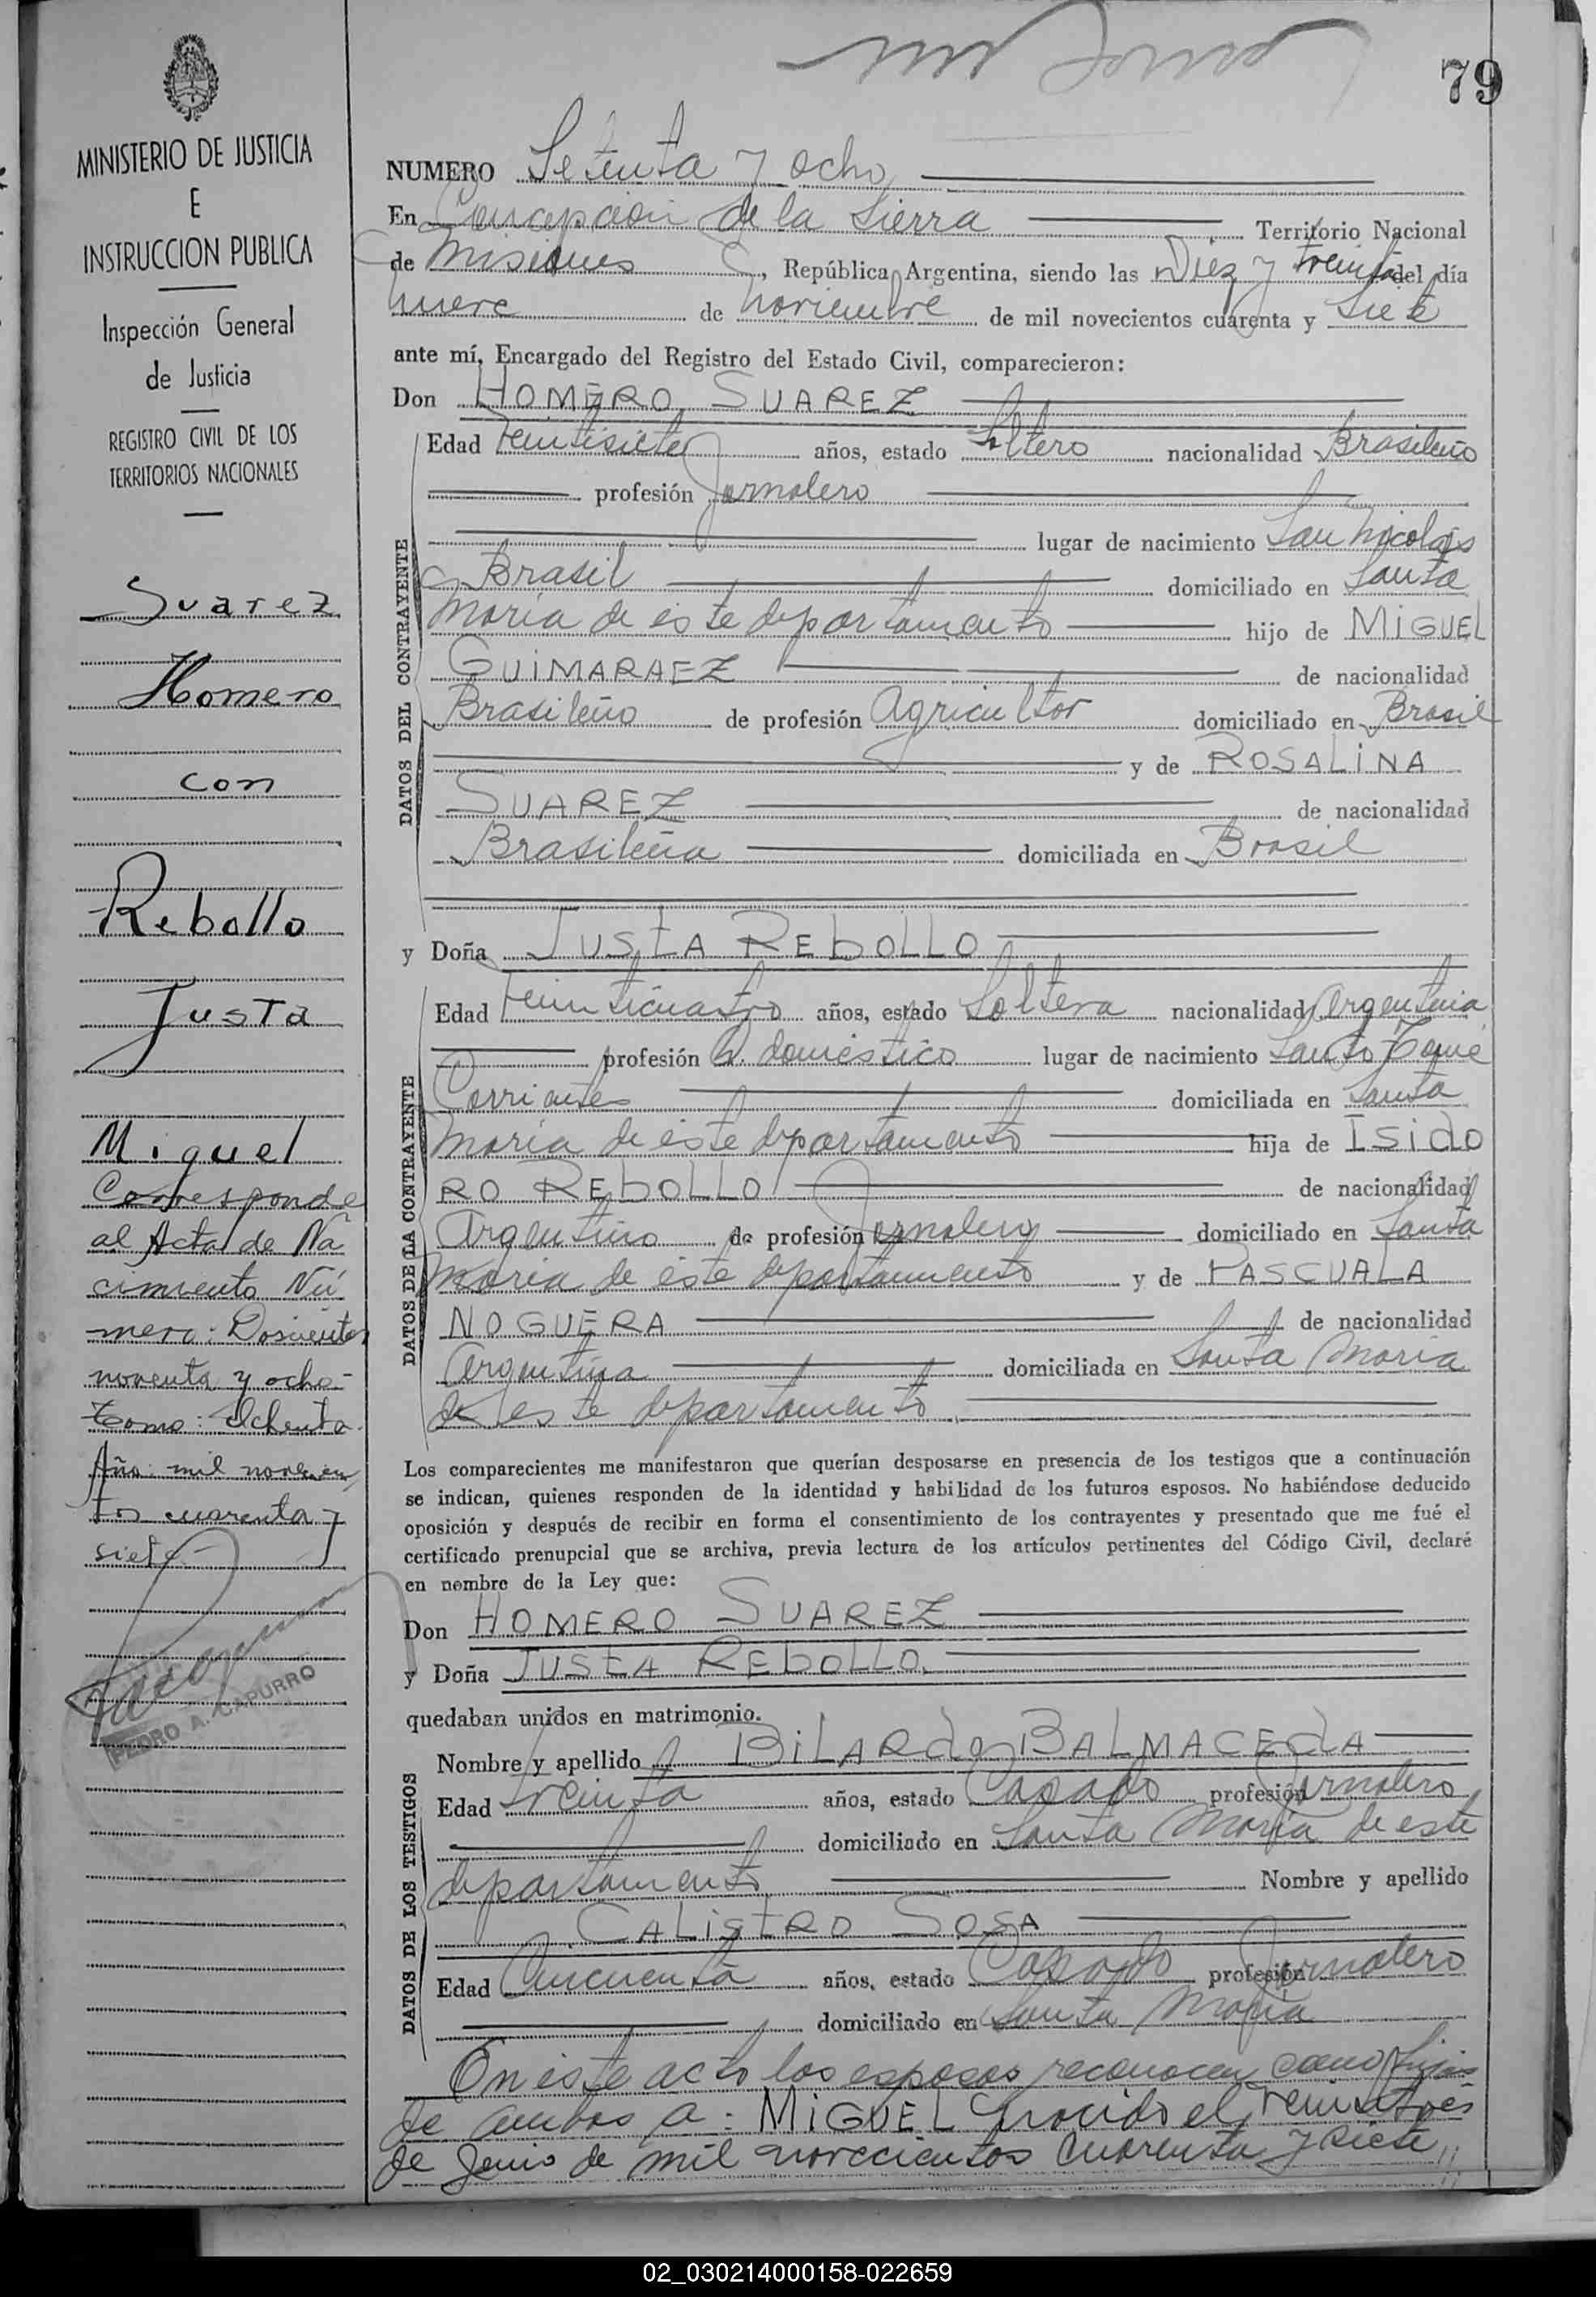 79
MINISTERIO DE JUSTICIA
E
INSTRUCCION PUBLICA
Inspección General
de Justicia
REGISTRO CIVIL DE LOS
TERRITORIOS NACIONALES
Suarez
Homero
con
Rebollo
Justa
Miguel
Corresponde
al Acta de Na
cimiento Nú
mero: Doscientos
noventa y ocho-
tomo: Ochenta
Año: mil novecien
tos cuarenta y
siete.-
PEDRO A. CAPURRO
NUMERO Setenta y ocho
En Concepción de la Sierra Territorio Nacional
de Misiones, República Argentina, siendo las Diez y treinta del día
nueve de noviembre de mil novecientos cuarenta y siete
ante mí, Encargado del Registro del Estado Civil, comparecieron:
Don HOMERO SUAREZ
DATOS DEL CONTRAYENTE
Edad veintisiete años, estado soltero nacionalidad Brasileño
profesión Jornalero
lugar de nacimiento San Nicolás
Brasil domiciliado en Santa
María de este departamento hijo de MIGUEL
GUIMARAEZ de nacionalidad
Brasileño de profesión Agricultor domiciliado en Brasil
y de ROSALINA
SUAREZ de nacionalidad
Brasileña domiciliada en Brasil
y Doña JUSTA REBOLLO
DATOS DE LA CONTRAYENTE
Edad veinticuatro años, estado Soltera nacionalidad Argentina
profesión Q. domestico lugar de nacimiento Santo Tomé
Corrientes domiciliada en Santa
María de este departamento hija de ISIDO
RO REBOLLO de nacionalidad
Argentino de profesión Jornalero domiciliado en Santa
María de este departamento y de PASCUALA
NOGUERA de nacionalidad
Argentina domiciliada en Santa María
de este departamento
Los comparecientes me manifestaron que querían desposarse en presencia de los testigos que a continuación
se indican, quienes responden de la identidad y habilidad de los futuros esposos. No habiéndose deducido
oposición y después de recibir en forma el consentimiento de los contrayentes y presentado que me fué el
certificado prenupcial que se archiva, previa lectura de los artículos pertinentes del Código Civil, declaré
en nombre de la Ley que:
Don HOMERO SUAREZ
y Doña JUSTA REBOLLO
quedaban unidos en matrimonio.
DATOS DE LOS TESTIGOS
Nombre y apellido BILARDO BALMACEDA
Edad treinta años, estado Casado profesión Jornalero
domiciliado en Santa María de este
departamento Nombre y apellido
CALISTRO SOSA
Edad Cincuenta años, estado Casado profesión Jornalero
domiciliado en Santa María
En este acto los esposos reconocen como hijos
de ambos a: MIGUEL nacido el veintitrés
de Junio de mil novecientos cuarenta y siete
02_030214000158-022659